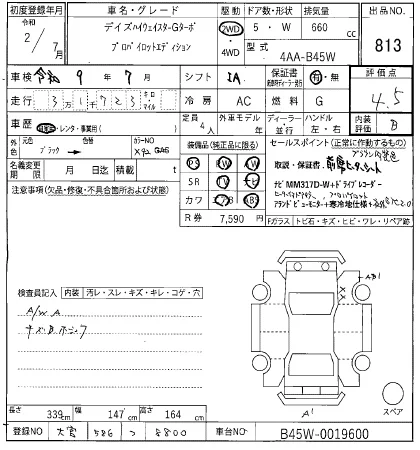 初度登録年月
車名・グレード
駆動
ドア数/形状
排気量
出品NO.
令和
2/7月
デイズハイウェイスターGターボ
プロパイロットエディション
2WD
・
4WD
5・W
660
cc
型式
4AA-B45W
813
車検
令和
9年7月
シフト
IA
保証書
有・無
評価点
4.5
走行
31723
キロ
マイル
冷房
AC
燃料
G
車歴
レンタ・事業用(
定員
4人
外車モデル
年
ディーラー
並行
ハンドル
左・右
内装
評価
B
外色
元色
色替
カラーNO
ブラック
GAS
装備品(純正品に限る)
セールスポイント(正常に作動するもの)
名義変更
期限
月
日
積載
t
PS
PW
SR
カワ
ABS
取説・保証書
ナビMM317D-W+ドライブレコーダー
アラウンドビューモニター+寒冷地仕様
注意事項(欠品・修復・不具合箇所および状態)
R券
7,590円
Fガラス
トビ石・キズ・ヒビ・ワレ・リペア跡
検査員記入
内装
汚レ・スレ・キズ・キレ・コゲ・穴
A/W A
AB1
A1
スペア
長さ
339
cm
幅
147
cm
高さ
164
cm
登録NO
大宮
586
つ
8800
車台NO
B45W-0019600